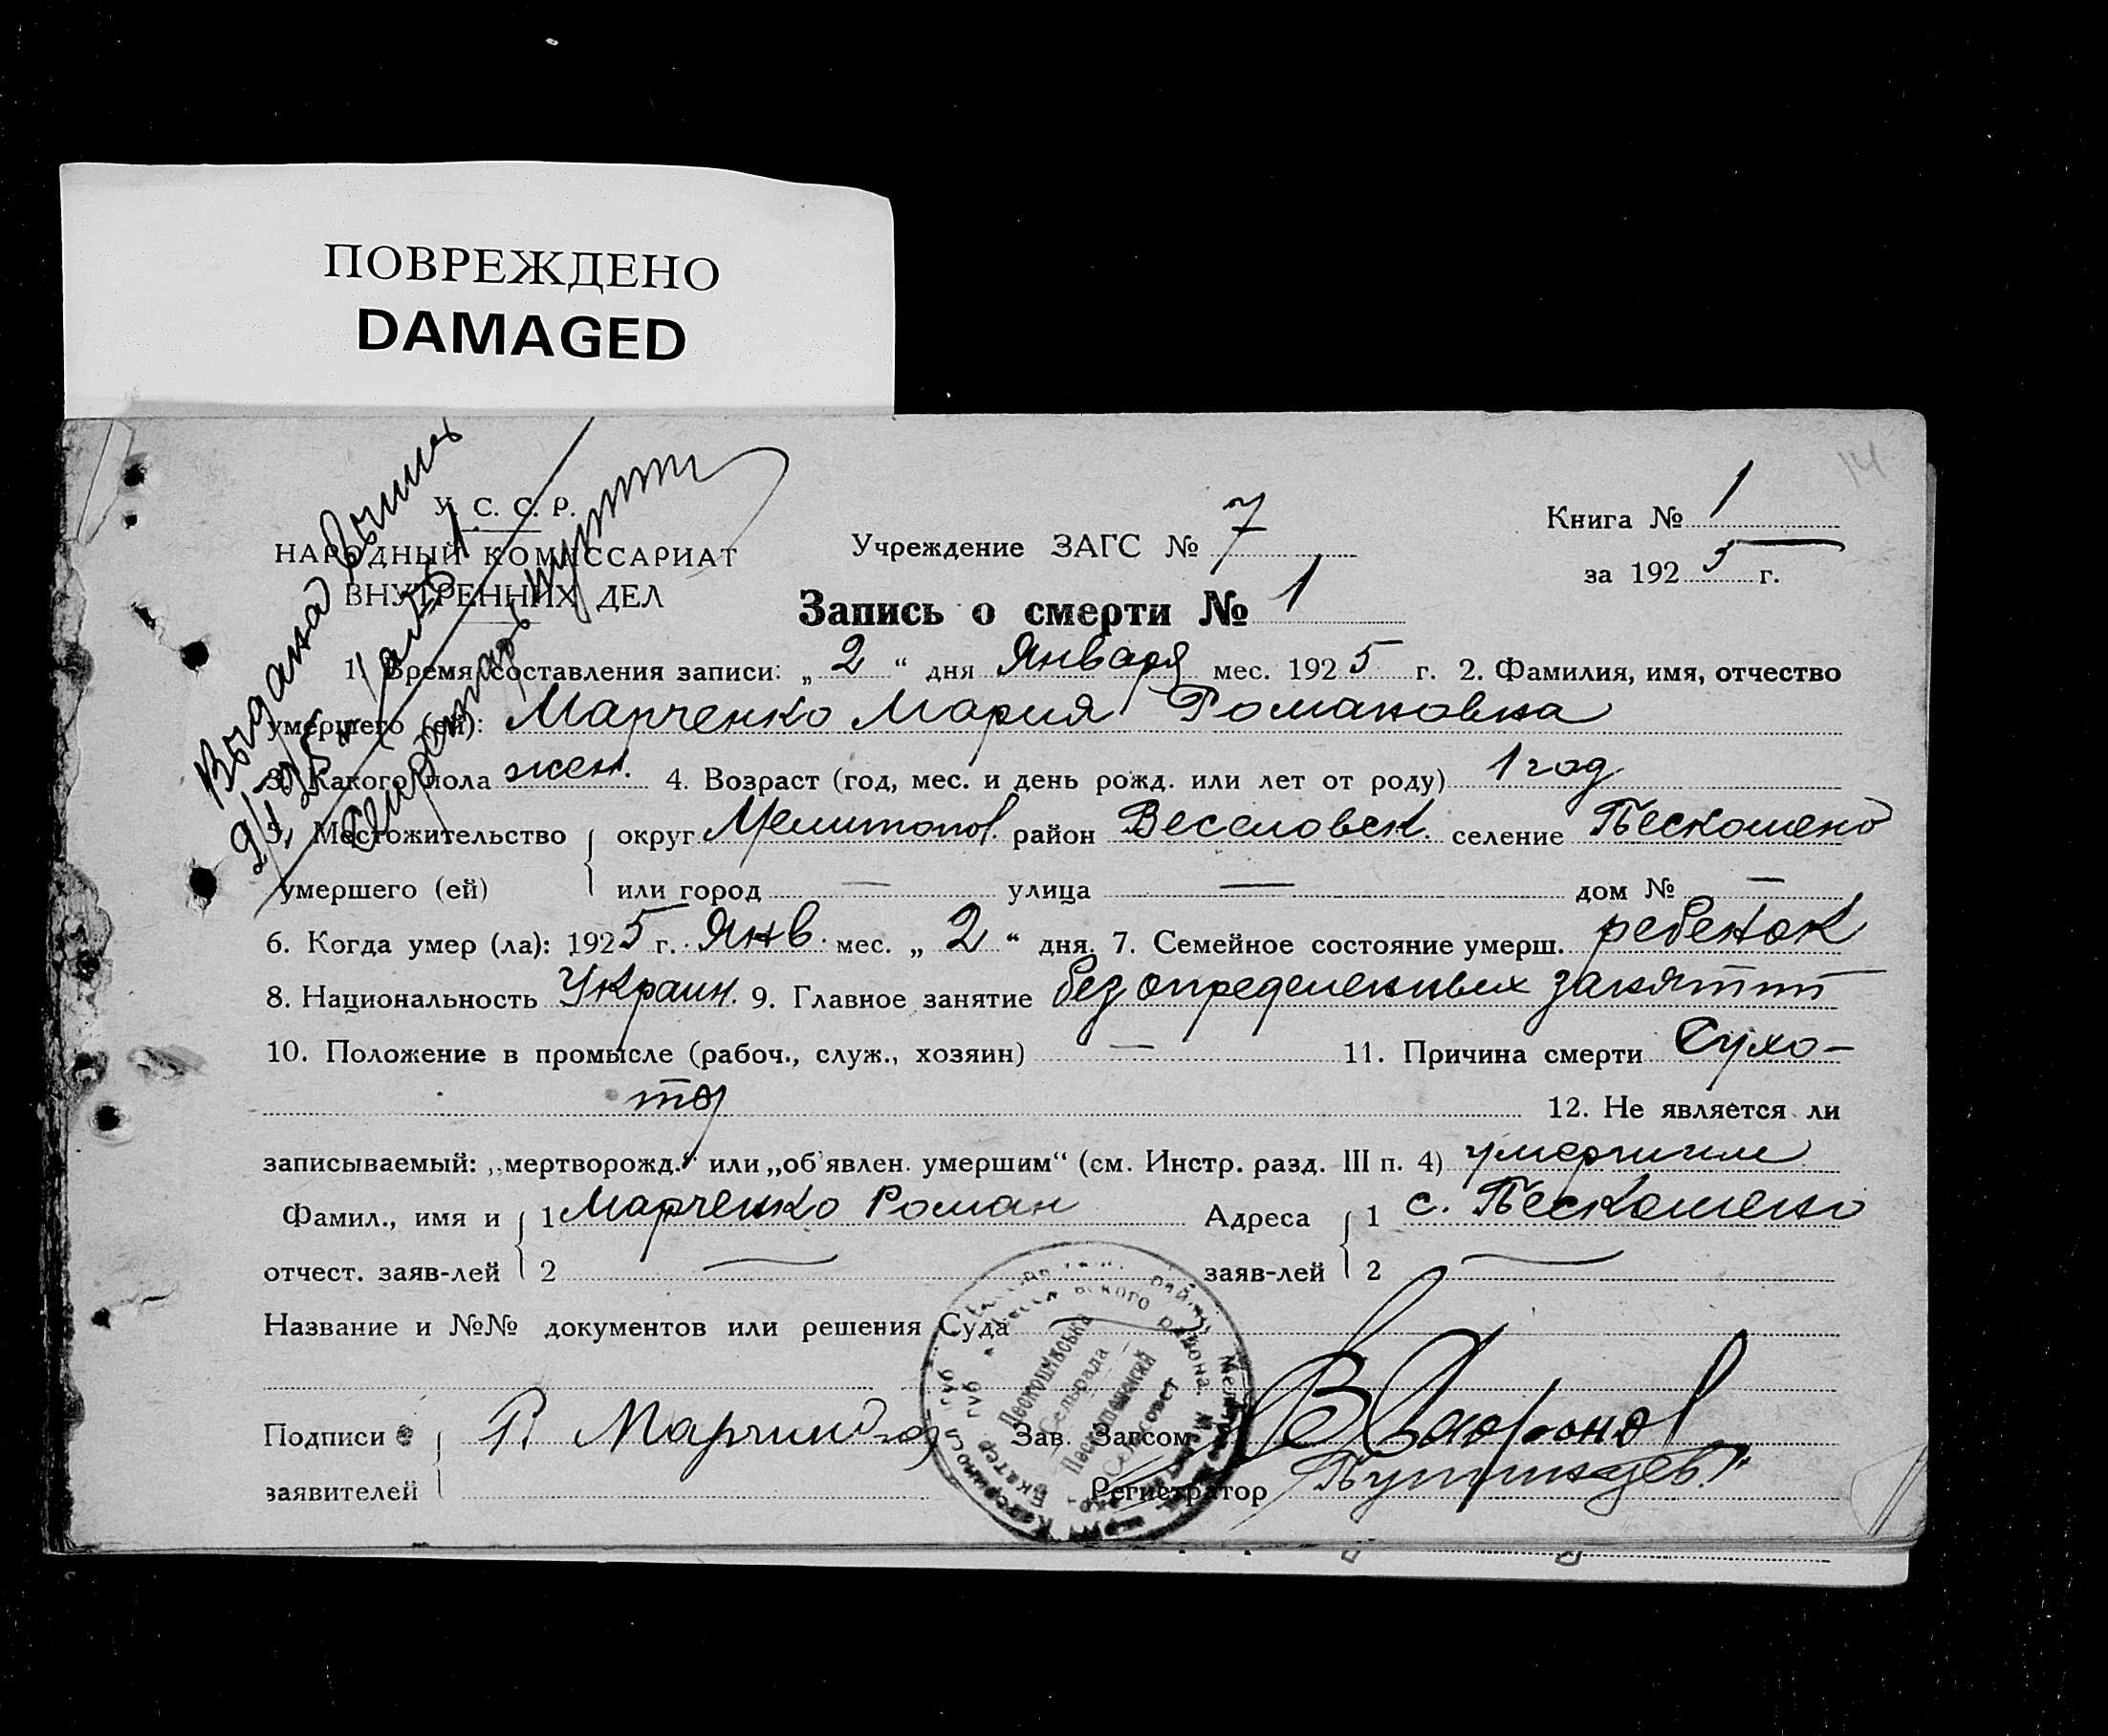 ПОВРЕЖДЕНО
DAMAGED
14
У. С. С. Р.
НАРОДНЫЙ КОМИССАРИАТ
ВНУТРЕННИХ ДЕЛ
Выдана
Учреждение ЗАГС № 7
Книга № 1
за 1925 г.
Запись о смерти № 1
1. Время составления записи: „ 2 “ дня Января мес. 1925 г. 2. Фамилия, имя, отчество
умершего (ей): Марченко Мария Романовна
3. Какого пола жен. 4. Возраст (год, мес. и день рожд. или лет от роду) 1 год
5. Местожительство округ Мелитопол. район Веселовск. селение Пескошено
умершего (ей) или город — улица — дом № —
6. Когда умер (ла): 1925 г. Янв. мес. „ 2 “ дня. 7. Семейное состояние умерш. ребенок
8. Национальность Украин. 9. Главное занятие без определенных занятий
10. Положение в промысле (рабоч., служ., хозяин) — 11. Причина смерти Сухо-
ты 12. Не является ли
записываемый: „мертворожд.“ или „об'явлен. умершим“ (см. Инстр. разд. III п. 4) умершим
Фамил., имя и 1 Марченко Роман Адреса 1 с. Пескошено
отчест. заяв-лей 2 — заяв-лей 2 —
Название и №№ документов или решения Суда —
Подписи Р. Зав. Загсом В Сафонов
заявителей Регистратор
Пескошинська
Сельрада
Пескошенский
Сельсовет